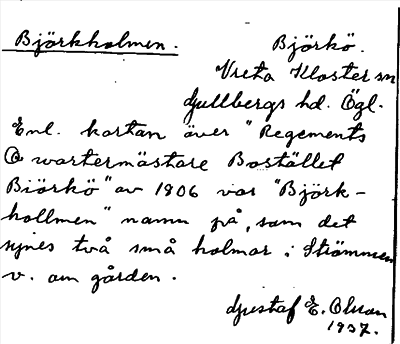 Björkholmen. Björkö.
Vreta Kloster sn
Gullbergs hd. Ögl.
Enl. kartan över "Regements
Qwartermästare Bostället
Biörkö" av 1806 var "Björk-
hollmen" namn på, som det
synes två små holmar i Strömmen
v. om gården.
Gustaf E. Olsson
1937.